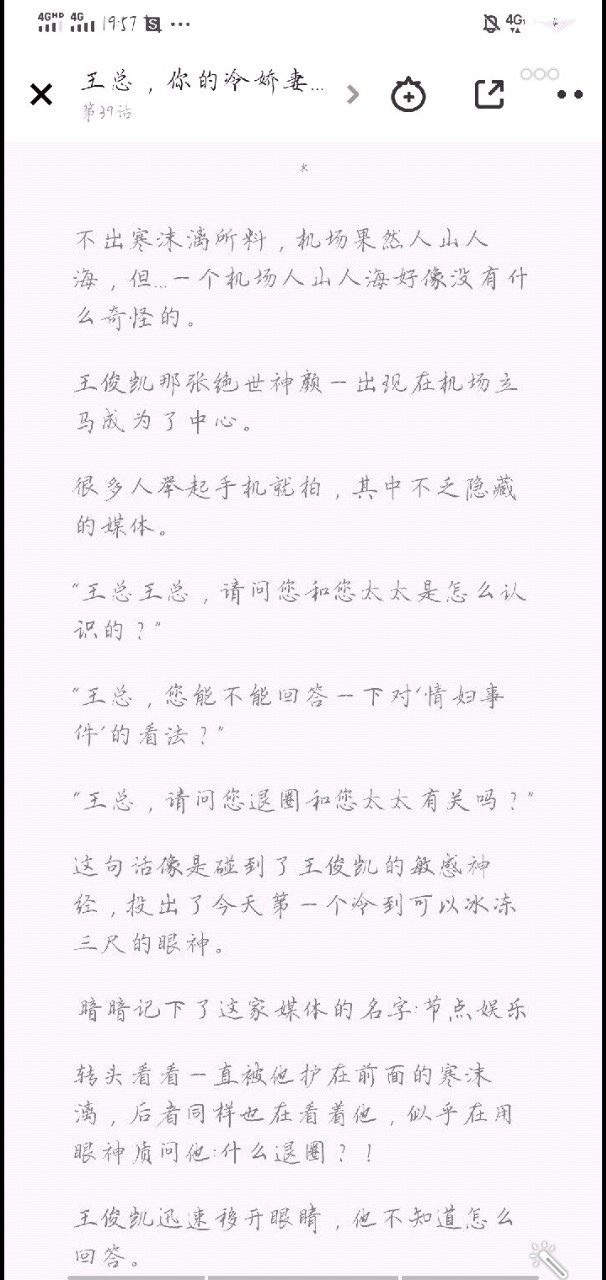 4GHD 4G 19:57 S ... 4G
王总，你的冷娇妻...
第39话
不出寒沫漓所料，机场果然人山人
海，但...一个机场人山人海好像没有什
么奇怪的。
王俊凯那张绝世神颜一出现在机场立
马成为了中心。
很多人举起手机就拍，其中不乏隐藏
的媒体。
“王总王总，请问您和您太太是怎么认
识的？”
“王总，您能不能回答一下对‘情妇事
件’的看法？”
“王总，请问您退圈和您太太有关吗？”
这句话像是碰到了王俊凯的敏感神
经，投出了今天第一个冷到可以冰冻
三尺的眼神。
暗暗记下了这家媒体的名字:节点娱乐
转头看看一直被他护在前面的寒沫
漓，后者同样也在看着他，似乎在用
眼神质问他:什么退圈？！
王俊凯迅速移开眼睛，他不知道怎么
回答。